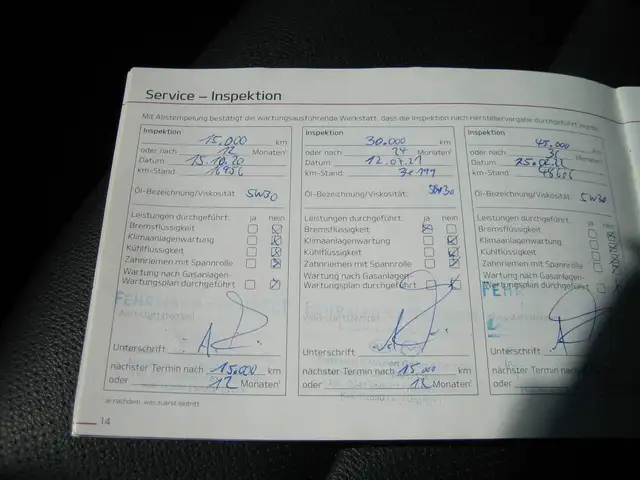 Service – Inspektion
Mit Abstempelung bestätigt die wartungsausführende Werkstatt, dass die Inspektion nach Herstellervorgabe durchgeführt wurde.
Inspektion 15.000 km
oder nach 12 Monaten¹
Datum 15.10.20
km-Stand
Öl-Bezeichnung/Viskosität: 5W30
Leistungen durchgeführt: ja nein
Bremsflüssigkeit
Klimaanlagenwartung
Kühlflüssigkeit
Zahnriemen mit Spannrolle
Wartung nach Gasanlagen-
Wartungsplan durchgeführt
Unterschrift
nächster Termin nach 15.000 km
oder 12 Monaten¹
Inspektion 30.000 km
oder nach 24 Monaten¹
Datum 12.07.21
km-Stand
Öl-Bezeichnung/Viskosität: 5W30
Leistungen durchgeführt: ja nein
Bremsflüssigkeit
Klimaanlagenwartung
Kühlflüssigkeit
Zahnriemen mit Spannrolle
Wartung nach Gasanlagen-
Wartungsplan durchgeführt
Unterschrift
nächster Termin nach 15.000 km
oder 12 Monaten¹
Inspektion 45.000 km
oder nach 36 Monaten¹
Datum
km-Stand
Öl-Bezeichnung/Viskosität: 5W30
Leistungen durchgeführt: ja nein
Bremsflüssigkeit
Klimaanlagenwartung
Kühlflüssigkeit
Zahnriemen mit Spannrolle
Wartung nach Gasanlagen-
Wartungsplan durchgeführt
FEHR
Unterschrift
nächster Termin nach
oder
¹ Je nachdem, was zuerst eintritt
14